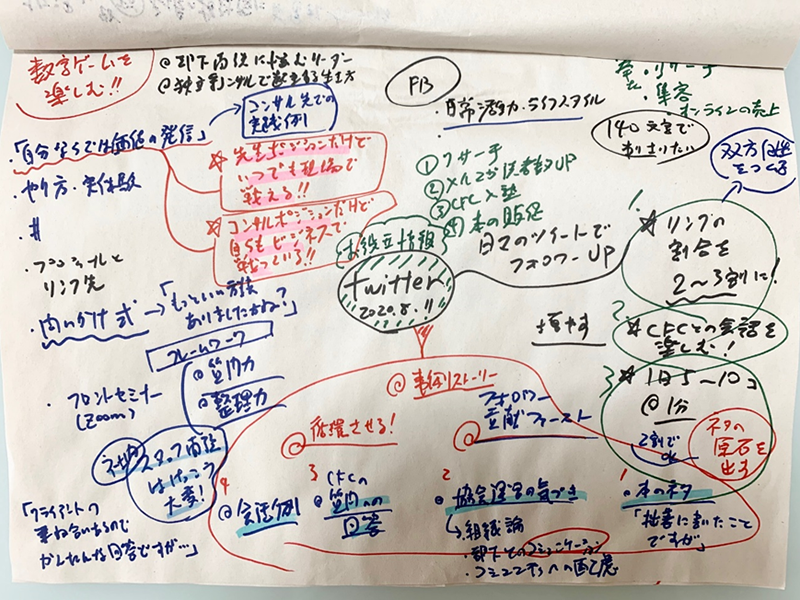 数字ゲームを
楽しむ!!
@部下面談に悩むリーダー
FB
・日常 潜力・ライフスタイル
・リサーチ
・集客
オンラインの売上
140文字で
双方向性
をつくる
コンサル先での
実践例
・「自分ならではの価値の発信」
☆先生ポジションだけど
いつでも現場で
戦える!!
・やり方・実体験
☆コンサルポジションだけど
自らもビジネスで
戦っている!!
・#
・プロフィールと
リンク先
①リサーチ
②メルマガ読者数UP
③CFC入塾
④本の販促
お役立ち情報
twitter
2020.8.11
日々のツイートで
フォロワーUP
1
☆リンクの
割合を
2〜3割に!
2
☆CFCとの会話を
楽しむ!
3
☆1日5〜10コ
@1分
増やす
2割で
OK
ネタの
原石を
出す
・問いかけ式→「もっといい方法
ありましたかね?」
フレームワーク
@質問力
@整理力
・フロントセミナー
(Zoom)
ネタ
スタッフ面談
はけっこう
大事!
「クライアントの
兼ね合いもあるので
かんたんな回答ですが…」
@事例・ストーリー
@循環させる!
@フォロワー
貢献ファースト
4
@会話例
3
CFCの
@質問への
回答
2
@協会運営の気づき
↳組織論
・部下とのコミュニケーション
・コミュニティへの配慮
1
@本のネタ
「拙著に書いたこと
ですが」